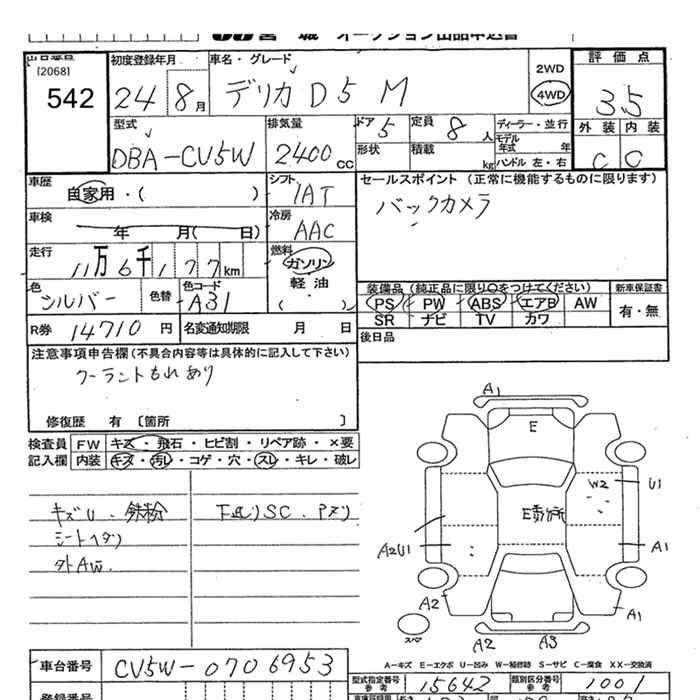 宮城 オークション出品申込書
出品番号 初度登録年月 車名・グレード 2WD 評価点
[2068]
542 24 8月 デリカD5 M 4WD 3.5
型式 排気量 ドア 5 定員 8人 ディーラー・並行 外装 内装
DBA-CV5W 2400CC 形状 積載 kg モデル年式 年 ハンドル 左・右 C C
車歴 自家用・( ) シフト IAT セールスポイント (正常に機能するものに限ります)
車検 年 月( 日) 冷房 AAC バックカメラ
走行 11万6千177km 燃料 ガソリン
軽油・
( )
色 シルバー 色替 色コード A31
装備品 (純正品に限り○をつけてください) 新車保証書
PS PW ABS エアB AW 有・無
SR ナビ TV カワ
R券 14710円 名変通知期限 月 日 後日品
注意事項申告欄 (不具合内容等は具体的に記入して下さい)
クーラントもれあり
修復歴 有 [箇所 ]
検査員 FW キズ・飛石・ヒビ割・リペア跡・×要
記入欄 内装 キズ・汚レ・コゲ・穴・スレ・キレ・破レ
キズU・鉄粉 下廻りSC・Pズリ
シートヘタリ
外AW.
A1
E
W2 U1
E多数箇所
A2U1 A1
A2 A1
スペア A2 A3
A-キズ E-エクボ U-凹み W-補修跡 S-サビ C-腐食 XX-交換済
車台番号 CV5W-0706953
型式指定番号 参考 15642 類別区分番号 参考 1001
登録番号